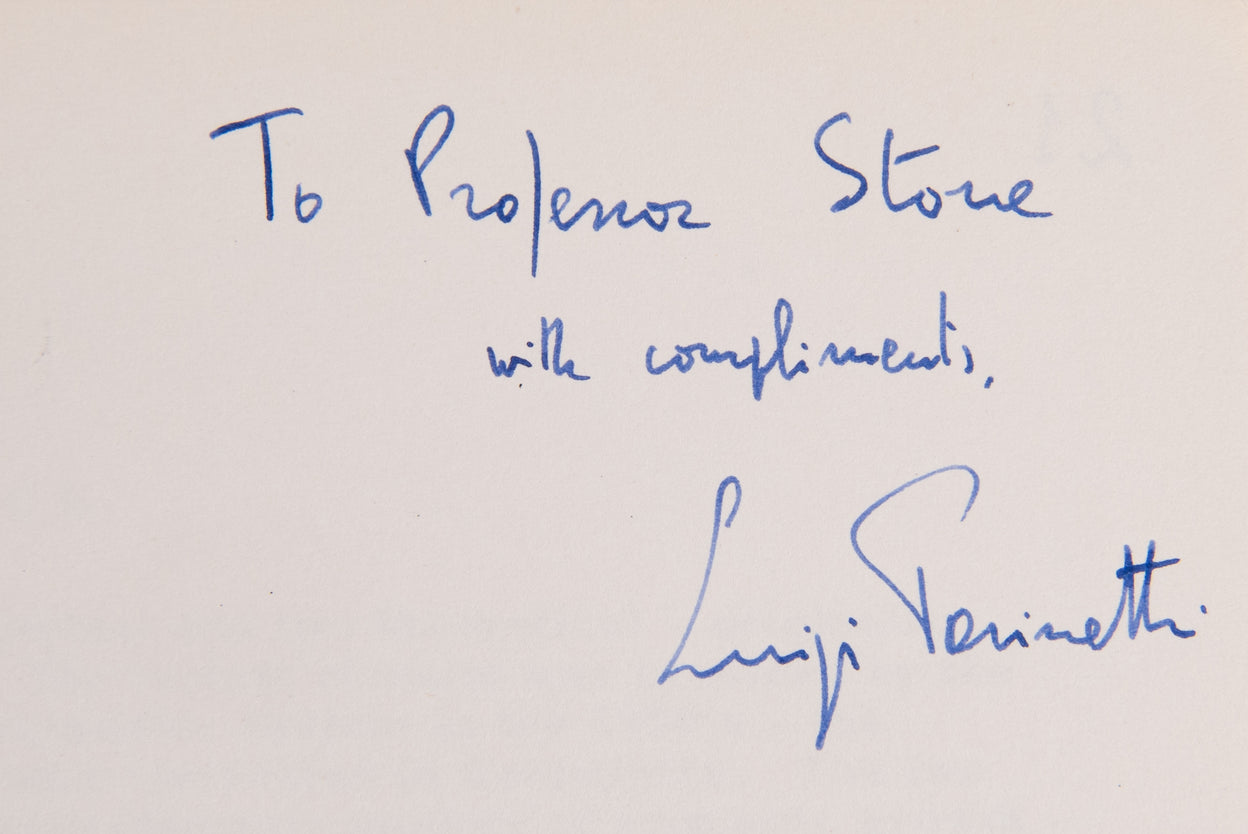 To Professor Stone
with compliments,
Luigi Pasinetti